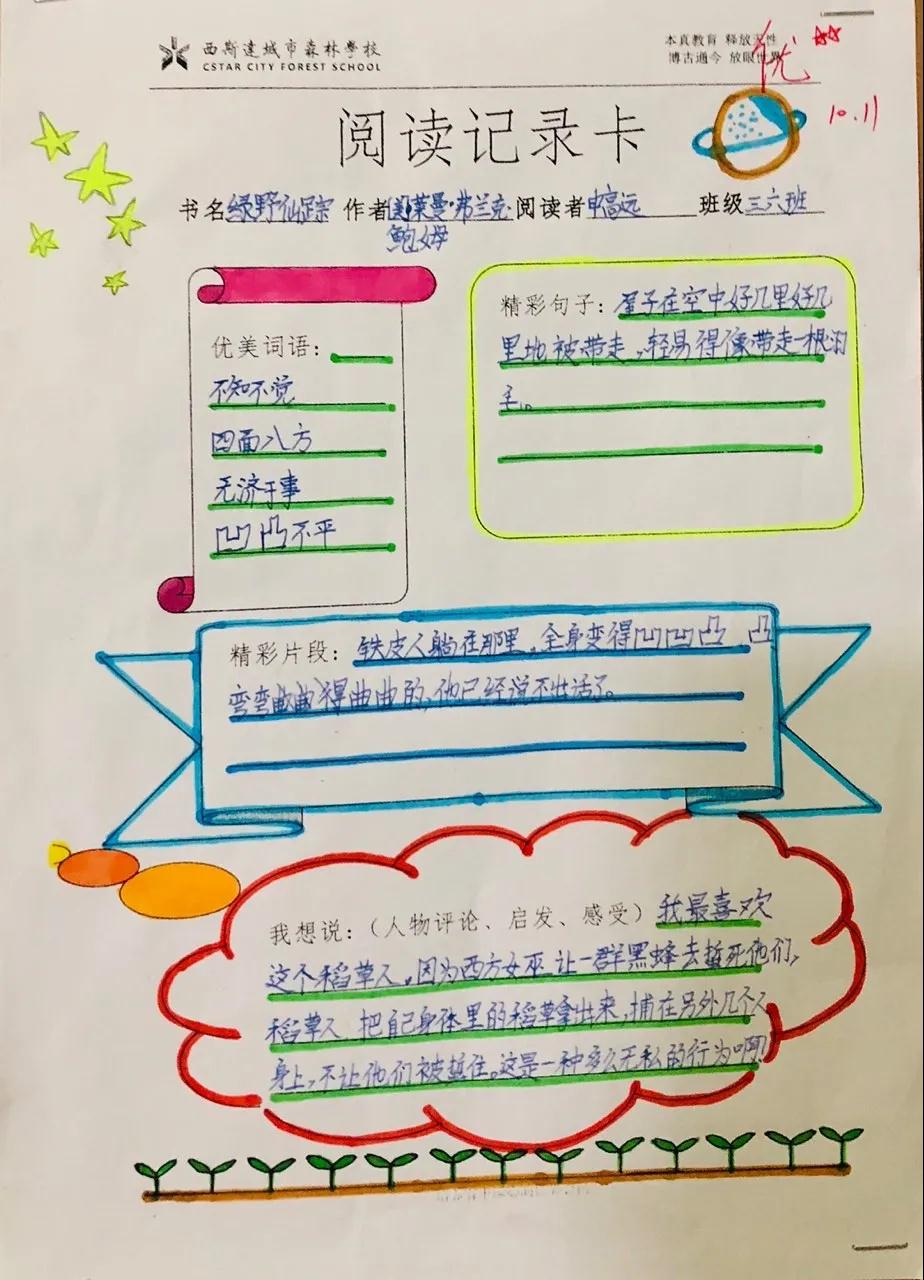 西斯达城市森林學校
CSTAR CITY FOREST SCHOOL
本真教育 释放天性
博古通今 放眼世界
优
10.11
阅读记录卡
书名绿野仙踪 作者[美]莱曼·弗兰克 阅读者申高远 班级三六班
鲍姆
优美词语:
不知不觉
四面八方
无济于事
凹凸不平
精彩句子:屋子在空中好几里好几
里地被带走,轻易得像带走一根羽
毛。
精彩片段:铁皮人躺在那里,全身变得凹凹凸凸
弯弯曲曲得曲曲的,他已经说不出话了。
我想说:(人物评论、启发、感受)我最喜欢
这个稻草人,因为西方女巫让一群黑蜂去蜇死他们,
稻草人 把自己身体里的稻草拿出来,捕在另外几个人
身上,不让他们被蜇住。这是一种多么无私的行为啊!